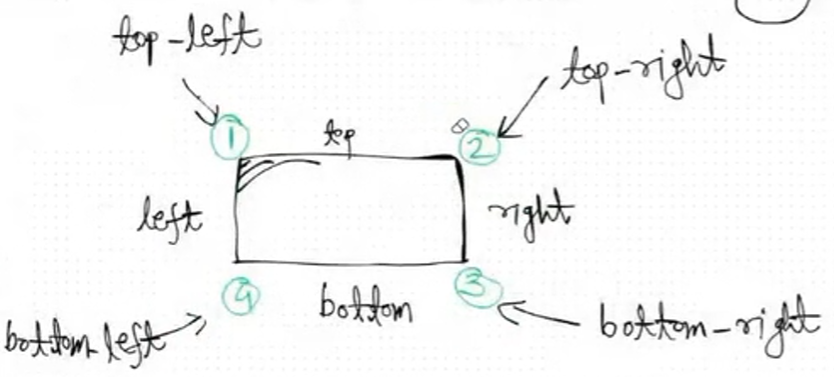 top-left
top-right
1
top
2
left
right
4
bottom
3
bottom-left
bottom-right